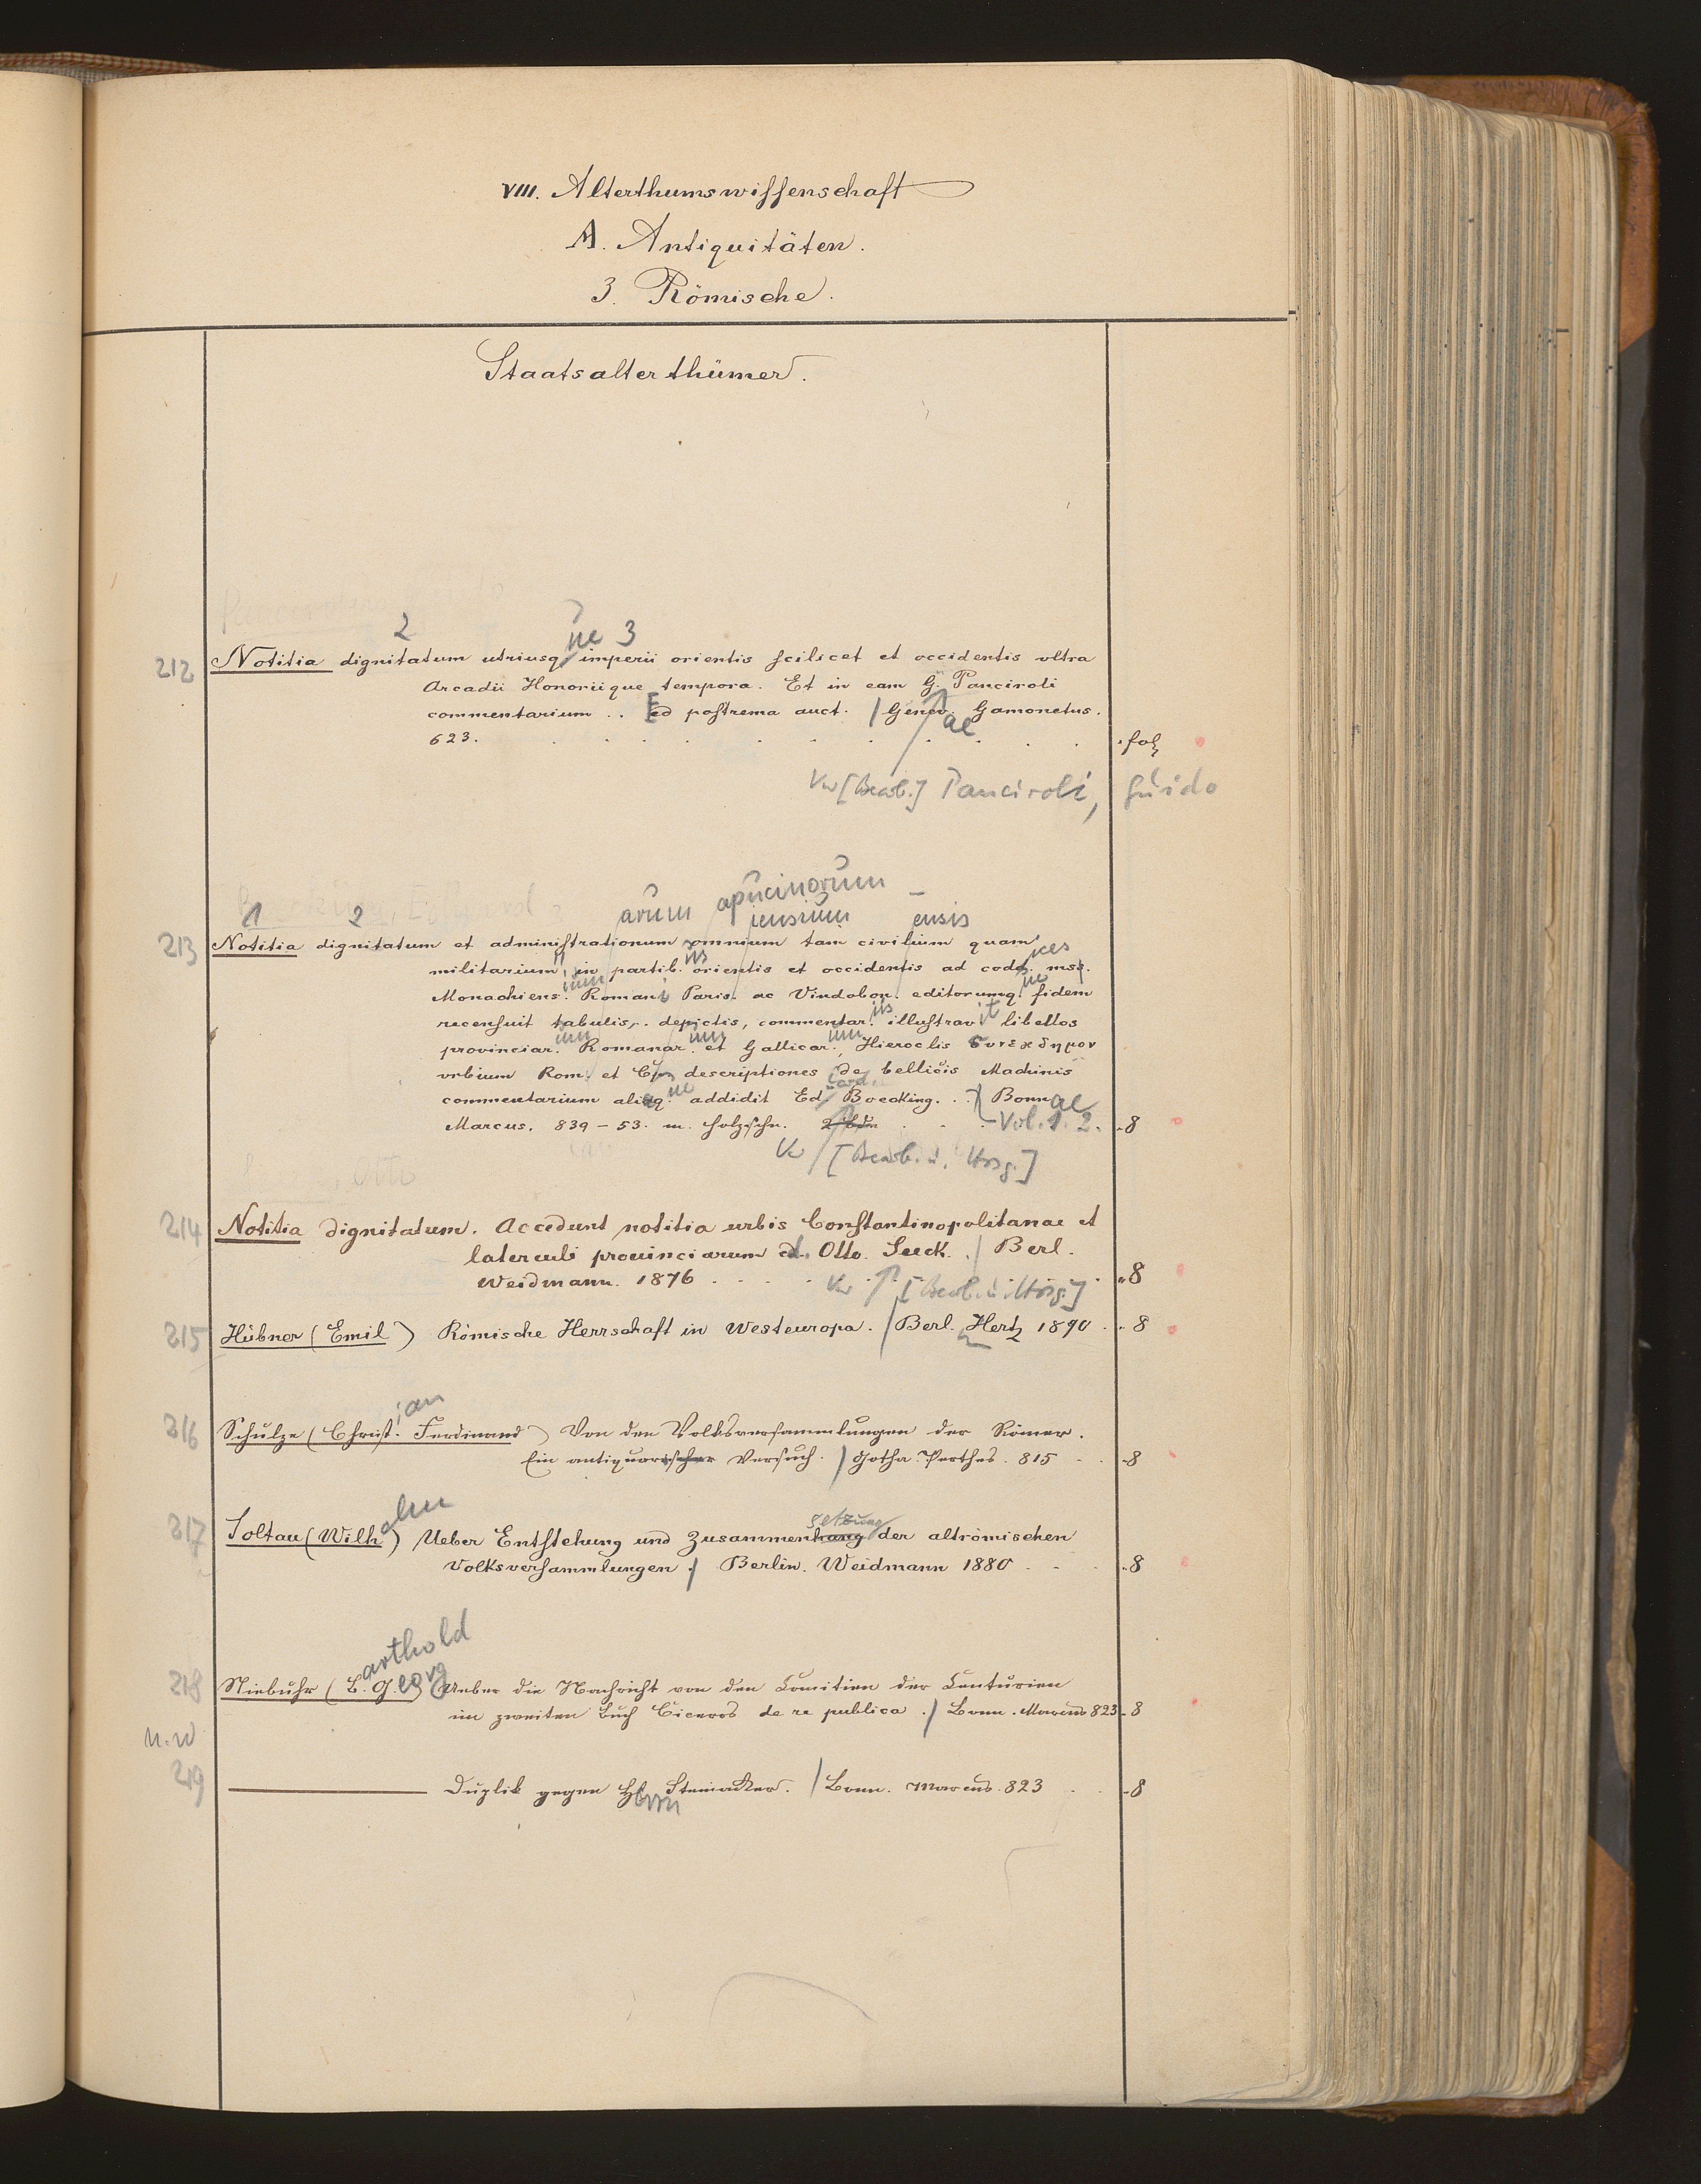 VIII. Alterthumswissenschaft
A. Antiquitäten.
3. Römische.
Staatsalterthümer.
2 ue 3
212 Notitia dignitatum utriusq imperii orientis scilicet et occidentis vltra
Arcadii Honoriique tempora. Et in eam G. Panciroli
commentarium .. Ed postrema auct. / Genev. Gamonetus.
ae
623. fol
Vw [Bearb.] Panciroli, Guido
apucinorum
1 2 arum iensium ensis
213 Notitia dignitatum et administrationum omnium tam civilium quam
militarium in partib. orientis et occidentis ad codd. mss.
Monachiens. Romani Paris. ac Vindobon. editorumq. fidem
recensuit tabulis, depictis, commentar. illustravit libellos
provinciar. Romanar. et Gallicar., Hieroclis συνεχδημον
vrbium Rom. et descriptiones de bellicis Machinis
commentarium aliaq. addidit Ed. Boecking. .. Bonnae
Marcus. 839 - 53. m. Holzschn. Vol. 1. 2. 8
Vw [Bearb. u. Hrsg.]
214 Notitia dignitatum. Accedunt notitia urbis Constantinopolitanae et
laterculi prouinciarum ed. Otto Seeck. / Berl.
Weidmann. 1876 8
Vw [Bearb. u. Hrsg.]
215 Hübner (Emil) Römische Herrschaft in Westeuropa. / Berl. Hertz 1890 8
ian
216 Schulze (Christ. Ferdinand) Von den Volksversammlungen der Römer.
Ein antiquarischer Versuch. / Gotha. Perthes. 815 8
elm setzung
217 Soltau (Wilh) Ueber Entstehung und Zusammenhang der altrömischen
Volksversammlungen. / Berlin. Weidmann 1880 8
arthold
218 Niebuhr (B. Georg) Ueber die Nachricht von den Comitien der Centurien
im zweiten Buch Ciceros de re publica. / Bonn. Marcus 823 8
n.w
219 Duplik gegen H Steinacker. / Bonn. Marcus. 823 8
errn